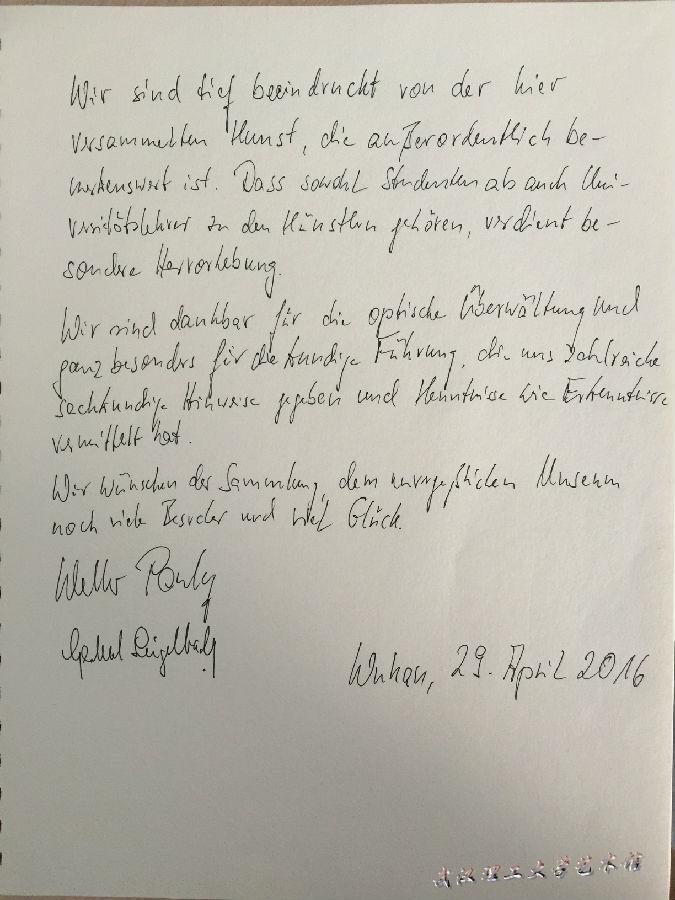 Wir sind tief beeindruckt von der hier
versammelten Kunst, die außerordentlich be-
merkenswert ist. Dass sowohl Studenten als auch Uni-
versitätslehrer zu den Künstlern gehören, verdient be-
sondere Hervorhebung.
Wir sind dankbar für die optische Überwältung und
ganz besonders für die kundige Führung, die uns zahlreiche
sachkundige Hinweise gegeben und Kenntnisse wie Erkenntnisse
vermittelt hat.
Wir wünschen der Sammlung, dem Museum
noch viele Besucher und viel Glück.
Pauly
Wuhan, 29. April 2016
武汉理工大学艺术馆